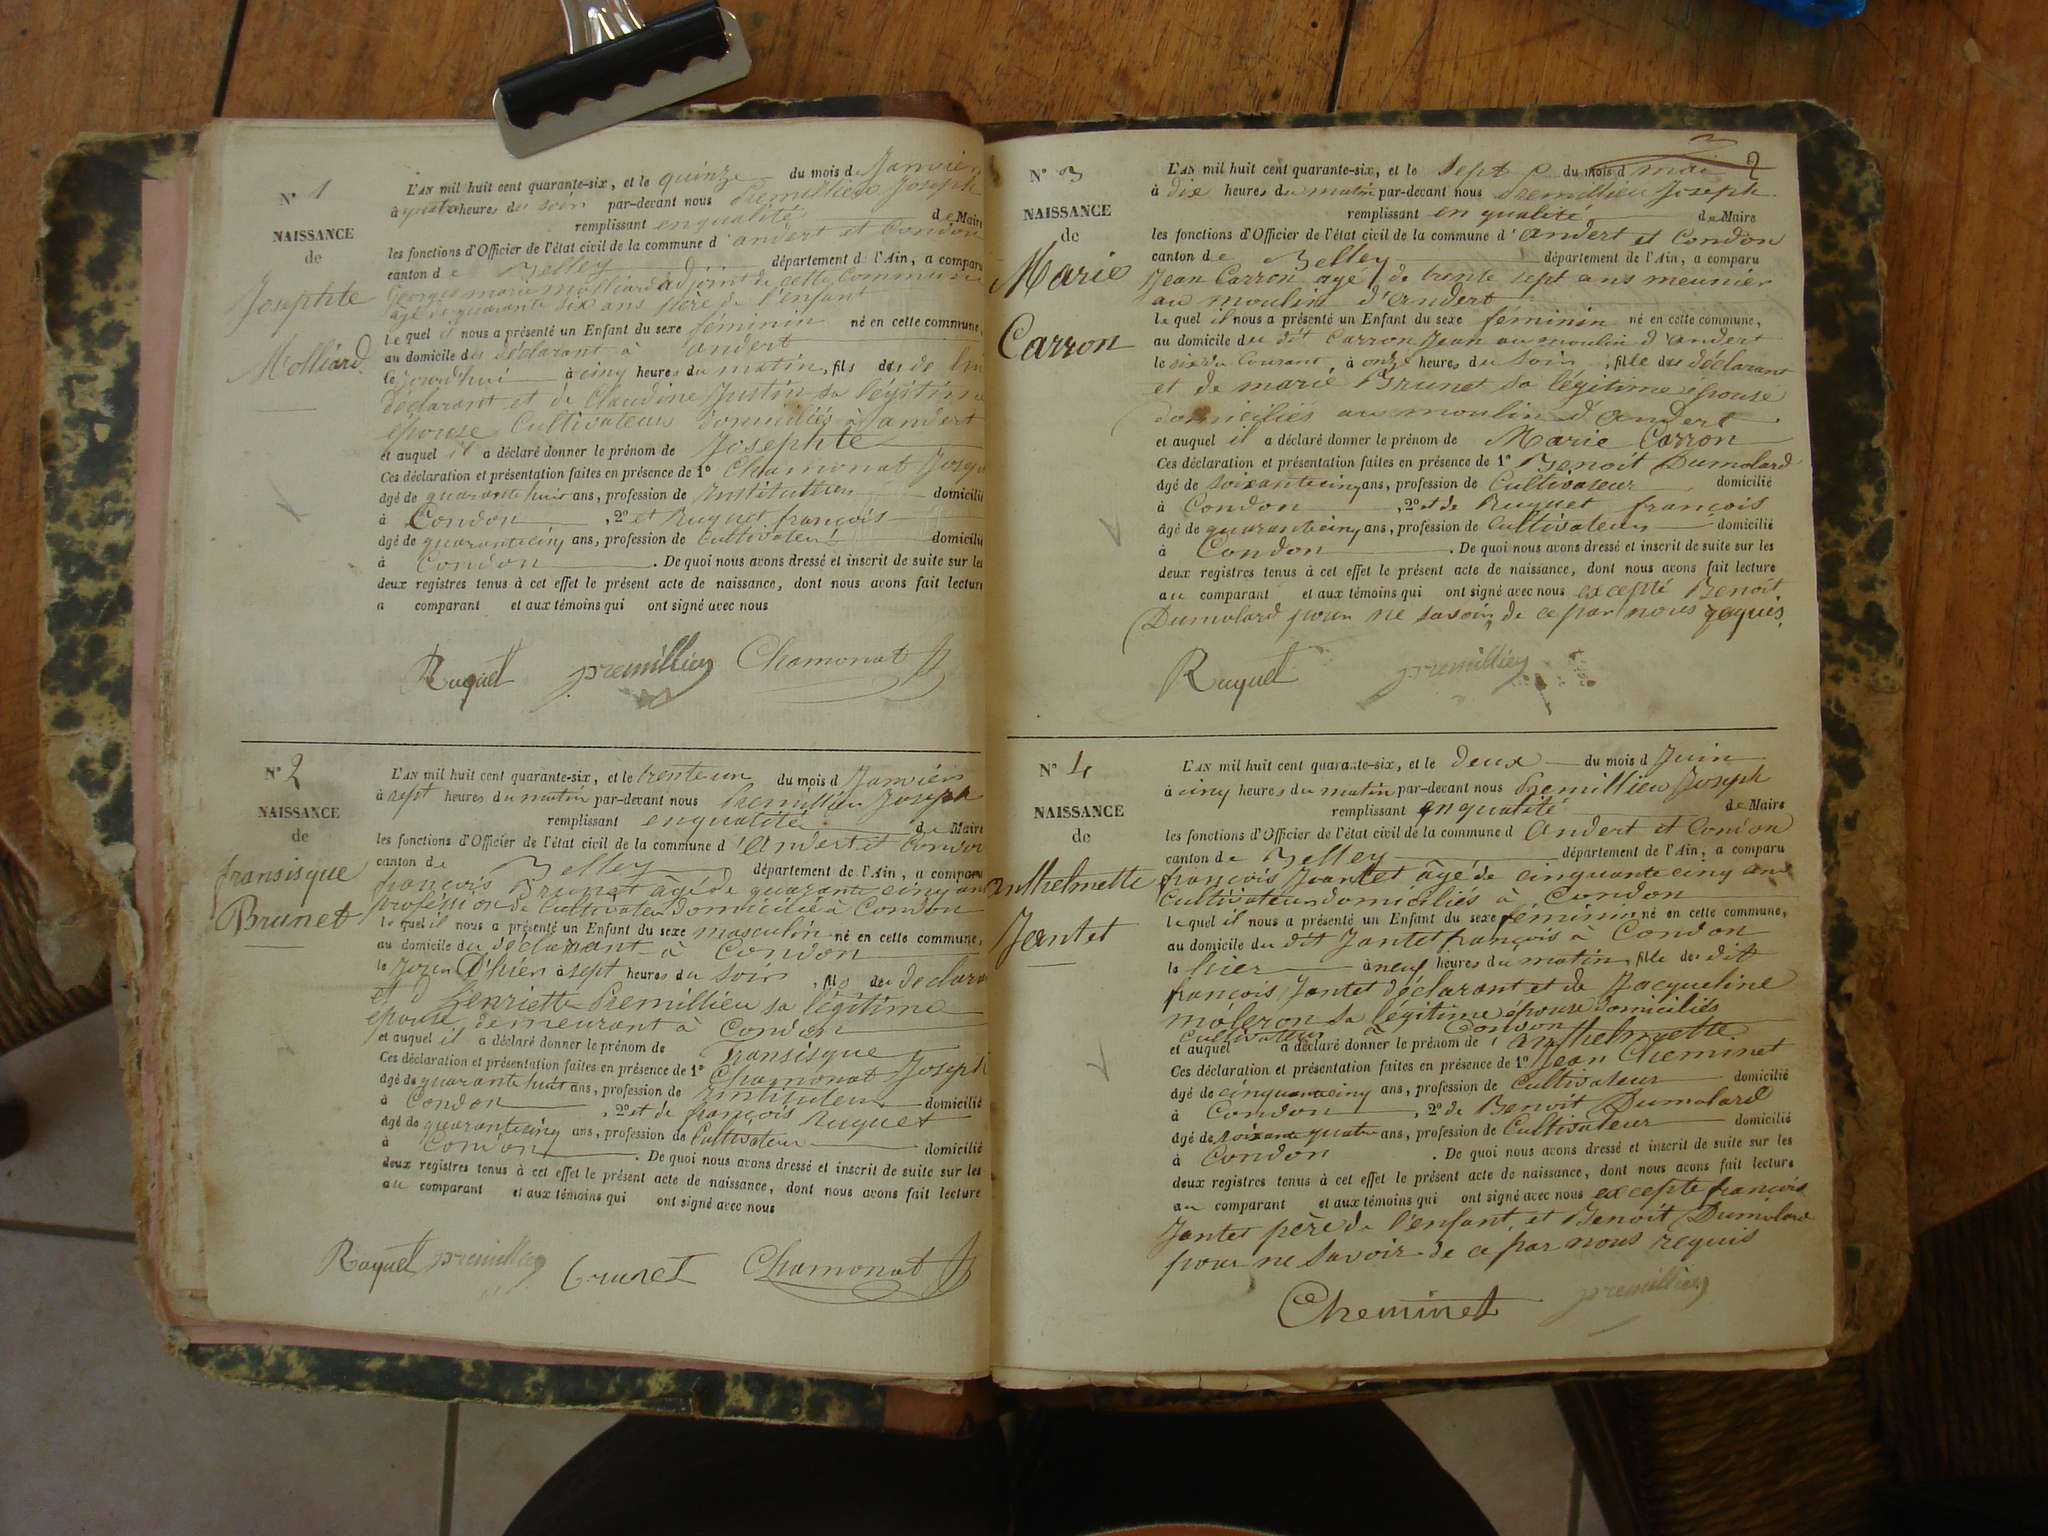 N° 1
NAISSANCE
de
Josephte
Molliard
L'AN mil huit cent quarante-six, et le quinze du mois d Janvier
à quatre heures du soir par-devant nous Premillieu Joseph
remplissant en qualité de Maire
les fonctions d'Officier de l'état civil de la commune d'andert et Condon
canton de Belley département de l'Ain, a comparu
Georges marie Molliard adjoint de cette Commune
agé de quarante six ans père de l'enfant
le quel il nous a présenté un Enfant du sexe féminin né en cette commune,
au domicile du déclarant à andert
le jourd'hui à cinq heures du matin, fils de lui
déclarant et de Claudine Justin sa légitime
épouse Cultivateurs domiciliés à andert
et auquel il a déclaré donner le prénom de Josephte
Ces déclaration et présentation faites en présence de 1° Chamonat Joseph
âgé de quarante huit ans, profession de Instituteur domicilié
à Condon, 2° et Ruquet françois
âgé de quarantecinq ans, profession de Cultivateur domicilié
à Condon. De quoi nous avons dressé et inscrit de suite sur les
deux registres tenus à cet effet le présent acte de naissance, dont nous avons fait lecture
a comparant et aux témoins qui ont signé avec nous
Ruquet premillieu Chamonat J
N° 2
NAISSANCE
de
fransisque
Brunet
L'AN mil huit cent quarante-six, et le trente un du mois d Janvier
à sept heures du matin par-devant nous Premillieu Joseph
remplissant en qualité de Maire
les fonctions d'Officier de l'état civil de la commune d'andert et Condon
canton de Belley département de l'Ain, a comparu
françois Brunet âgé de quarante cinq ans
profession de Cultivateur domicilié à Condon
le quel il nous a présenté un Enfant du sexe masculin né en cette commune,
au domicile du déclarant à Condon
le Jour D'hier à sept heures du soir, fils du déclarant
et d henriette Premillieu sa légitime
épouse demeurant à Condon
et auquel il a déclaré donner le prénom de Fransisque
Ces déclaration et présentation faites en présence de 1° Chamonat Joseph
âgé de quarante huit ans, profession de Instituteur domicilié
à Condon, 2° et de françois Ruquet
âgé de quarantecinq ans, profession de Cultivateur domicilié
à Condon. De quoi nous avons dressé et inscrit de suite sur les
deux registres tenus à cet effet le présent acte de naissance, dont nous avons fait lecture
au comparant et aux témoins qui ont signé avec nous
Ruquet premillieu Brunet Chamonat J
2
N° 3
NAISSANCE
de
Marie
Carron
L'AN mil huit cent quarante-six, et le sept du mois d mai
à dix heures du matin par-devant nous Premillieu Joseph
remplissant en qualité de Maire
les fonctions d'Officier de l'état civil de la commune d'andert et Condon
canton de Belley département de l'Ain, a comparu
Jean Carron agé de trente sept ans meunier
au moulin d'andert
le quel il nous a présenté un Enfant du sexe féminin né en cette commune,
au domicile du dit Carron Jean au moulin d'andert
le six du Courant, à onze heures du soir, fille du déclarant
et de marie Brunet sa légitime épouse
domiciliés au moulin d'andert
et auquel il a déclaré donner le prénom de Marie Carron
Ces déclaration et présentation faites en présence de 1° Benoit Dumolard
âgé de soixantecinq ans, profession de Cultivateur domicilié
à Condon, 2° et de Ruquet françois
âgé de quarantecinq ans, profession de Cultivateur domicilié
à Condon. De quoi nous avons dressé et inscrit de suite sur les
deux registres tenus à cet effet le présent acte de naissance, dont nous avons fait lecture
au comparant et aux témoins qui ont signé avec nous excepté Benoit
Dumolard pour ne savoir de ce par nous requis.
Ruquet premillieu
N° 4
NAISSANCE
de
anthelmette
Jantet
L'AN mil huit cent quarante-six, et le deux du mois d Juin
à cinq heures du matin par-devant nous Premillieu Joseph
remplissant en qualité de Maire
les fonctions d'Officier de l'état civil de la commune d andert et Condon
canton de Belley département de l'Ain, a comparu
françois Jantet âgé de cinquante cinq ans
Cultivateur domiciliés à Condon
le quel il nous a présenté un Enfant du sexe féminin né en cette commune,
au domicile du dit Jantet françois à Condon
le hier à neuf heures du matin, fille du dit
françois Jantet déclarant et de Jacqueline
moleron sa légitime épouse domiciliés
Cultivateurs à Condon
et auquel a déclaré donner le prénom de anthelmette
Ces déclaration et présentation faites en présence de 1° Jean Cheminet
âgé de cinquantecinq ans, profession de Cultivateur domicilié
à Condon, 2° de Benoit Dumolard
âgé de soixante quatre ans, profession de Cultivateur domicilié
à Condon. De quoi nous avons dressé et inscrit de suite sur les
deux registres tenus à cet effet le présent acte de naissance, dont nous avons fait lecture
au comparant et aux témoins qui ont signé avec nous excepté françois
Jantet père de l'enfant et Benoit Dumolard
pour ne savoir de ce par nous requis
Cheminet premillieu